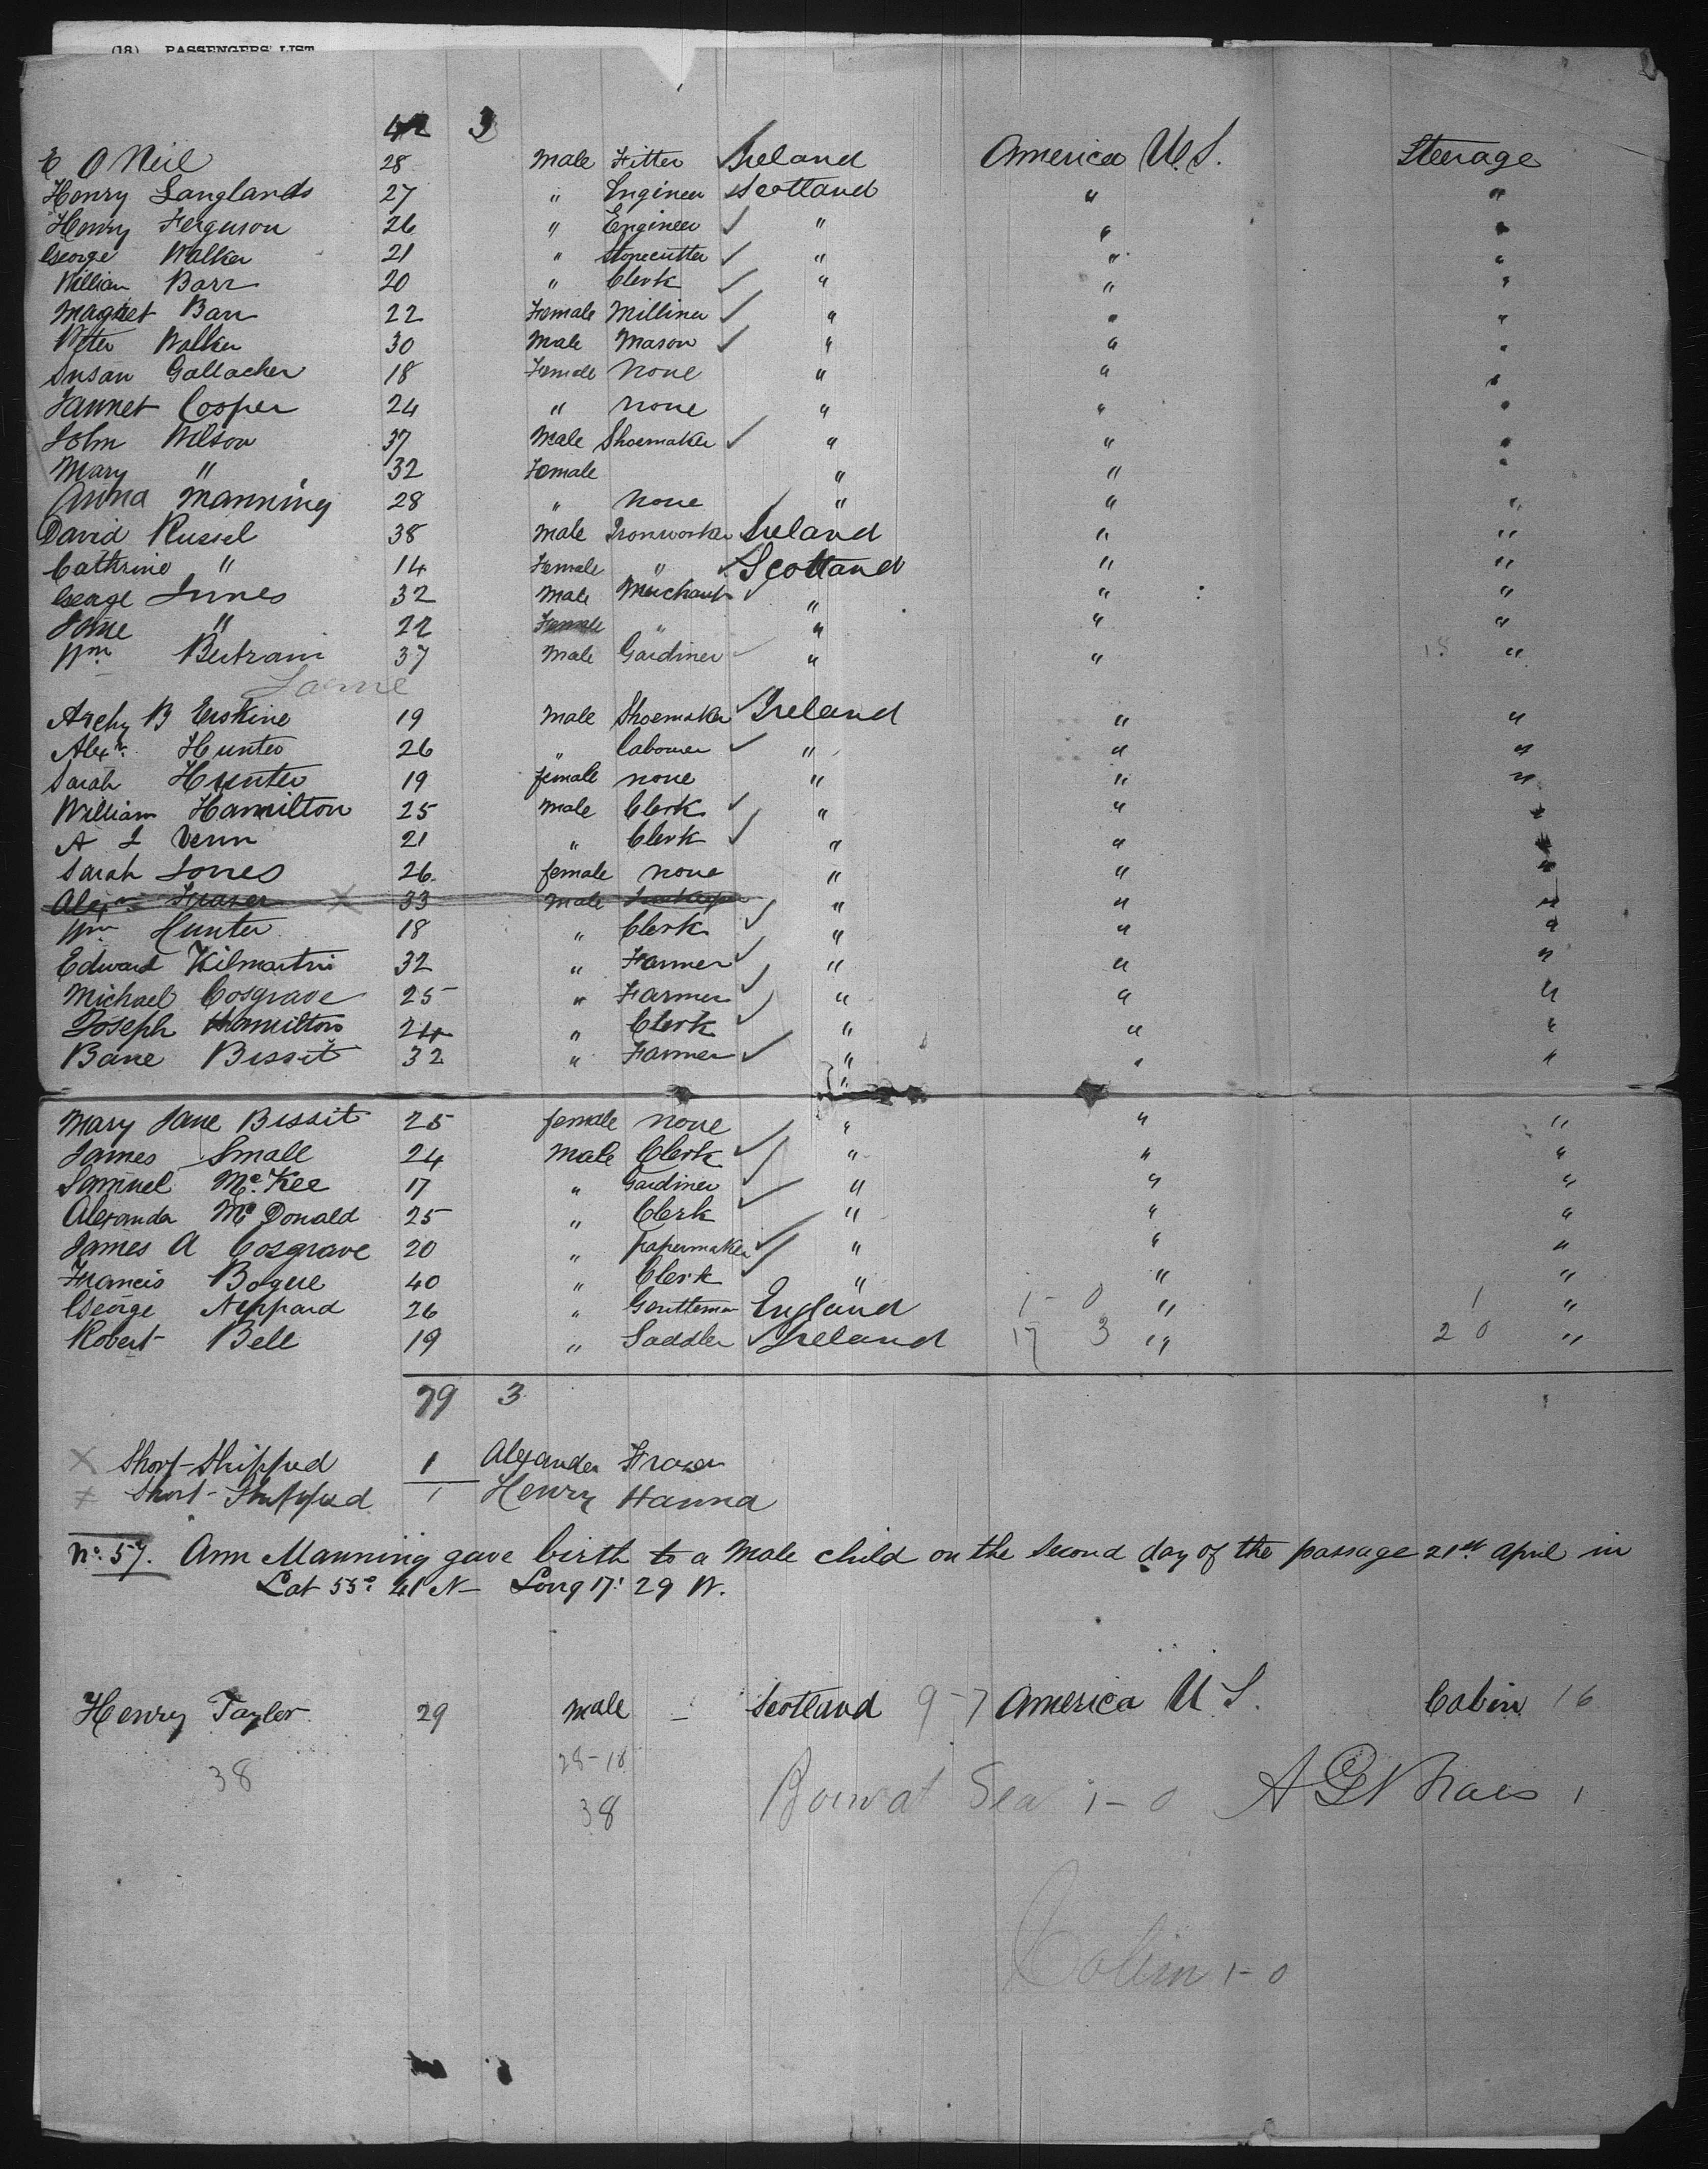 (18) PASSENGERS' LIST
42 3
E O Neil 28 Male Fitter Ireland America U.S. Steerage
Henry Langlands 27 " Engineer Scotland " "
Henry Ferguson 26 " Engineer " " "
George Walker 21 " Stonecutter " " "
William Barr 20 " Clerk " " "
Magret Barr 22 Female Milliner " " "
Peter Walker 30 Male Mason " " "
Susan Gallacher 18 Female None " " "
Jannet Cosper 24 " None " " "
John Wilson 37 Male Shoemaker " " "
Mary " 32 Female " " "
Anna Manning 28 " None " " "
David Russel 38 Male Ironworker Ireland " "
Cathrine " 14 Female " Scotland " "
George Innes 32 Male Merchant " " "
Jane " 22 Female " " " "
Wm Bertram 37 Male Gardiner " " 18 "
Larne
Archy B Erskine 19 Male Shoemaker Ireland " "
Alexr Hunter 26 " Labourer " " "
Sarah Hunter 19 female none " " "
William Hamilton 25 Male Clerk " " "
A L Venn 21 " Clerk " " "
Sarah Jones 26 female none " " "
Alexr Fraser X 33 Male " " "
Wm Hunter 18 " Clerk " " "
Edward Kilmartin 32 " Farmer " " "
Michael Cosgrave 25 " Farmer " " "
Joseph Hamilton 24 " Clerk " " "
Bane Bissit 32 " Farmer " " "
Mary Jane Bissit 25 female none " " "
James Small 24 Male Clerk " " "
Samuel McKee 17 " Gardiner " " "
Alexander McDonald 25 " Clerk " " "
James A Cosgrave 20 " papermaker " " "
Francis Bogue 40 " Clerk " " "
George Neppard 26 " Gentleman England 1-0 " 1 "
Robert Bell 19 " Saddler Ireland 17 3 " 20 "
79 3
X Short-Shipped 1 Alexander Fraser
X Short-Shipped 1 Henry Hanna
No. 57. Ann Manning gave birth to a Male child on the second day of the passage 21st April in
Lat 55° 41 N- Long 17° 29 W.
Henry Taylor 29 Male - Scotland 9-7 America U S. Cabin 16
38 28-18
38 Born at Sea 1-0 1
Cabin 1-0